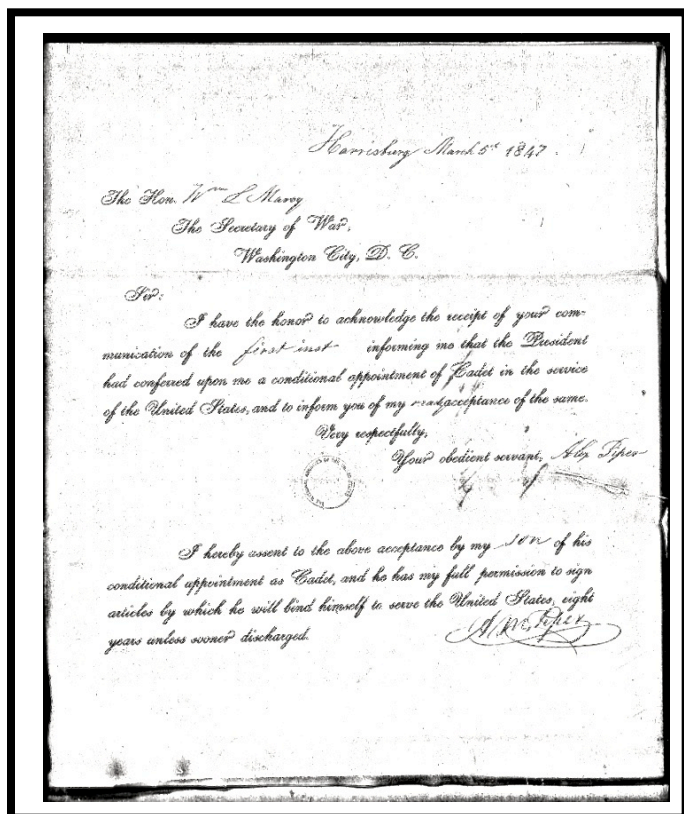 Harrisburg March 5th 1847.
The Hon. Wm L Marcy
The Secretary of War,
Washington City, D. C.
Sir:
I have the honor to acknowledge the receipt of your com-
munication of the first inst informing me that the President
had conferred upon me a conditional appointment of Cadet in the service
of the United States, and to inform you of my acceptance of the same.
Very respectfully,
Your obedient servant, Alex Piper
I hereby assent to the above acceptance by my son of his
conditional appointment as Cadet, and he has my full permission to sign
articles by which he will bind himself to serve the United States, eight
years unless sooner discharged.
Piper